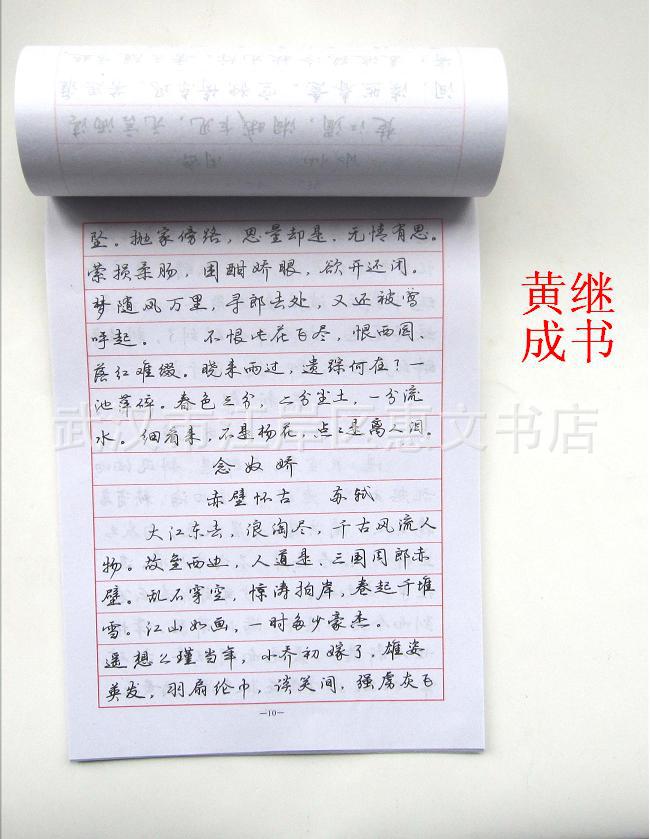 坠。抛家傍路，思量却是、无情有思。
萦损柔肠，困酣娇眼，欲开还闭。
梦随风万里，寻郎去处，又还被莺
呼起。 不恨此花飞尽，恨西园、
落红难缀。晓来雨过，遗踪何在？一
池萍碎。春色三分，二分尘土，一分流
水。细看来，不是杨花，点点是离人泪。
念奴娇
赤壁怀古 苏轼
大江东去，浪淘尽，千古风流人
物。故垒西边，人道是、三国周郎赤
壁。乱石穿空，惊涛拍岸，卷起千堆
雪。江山如画，一时多少豪杰。
遥想公瑾当年，小乔初嫁了，雄姿
英发，羽扇纶巾，谈笑间，强虏灰飞
—10—
黄继
成书
武汉市江岸区惠文书店